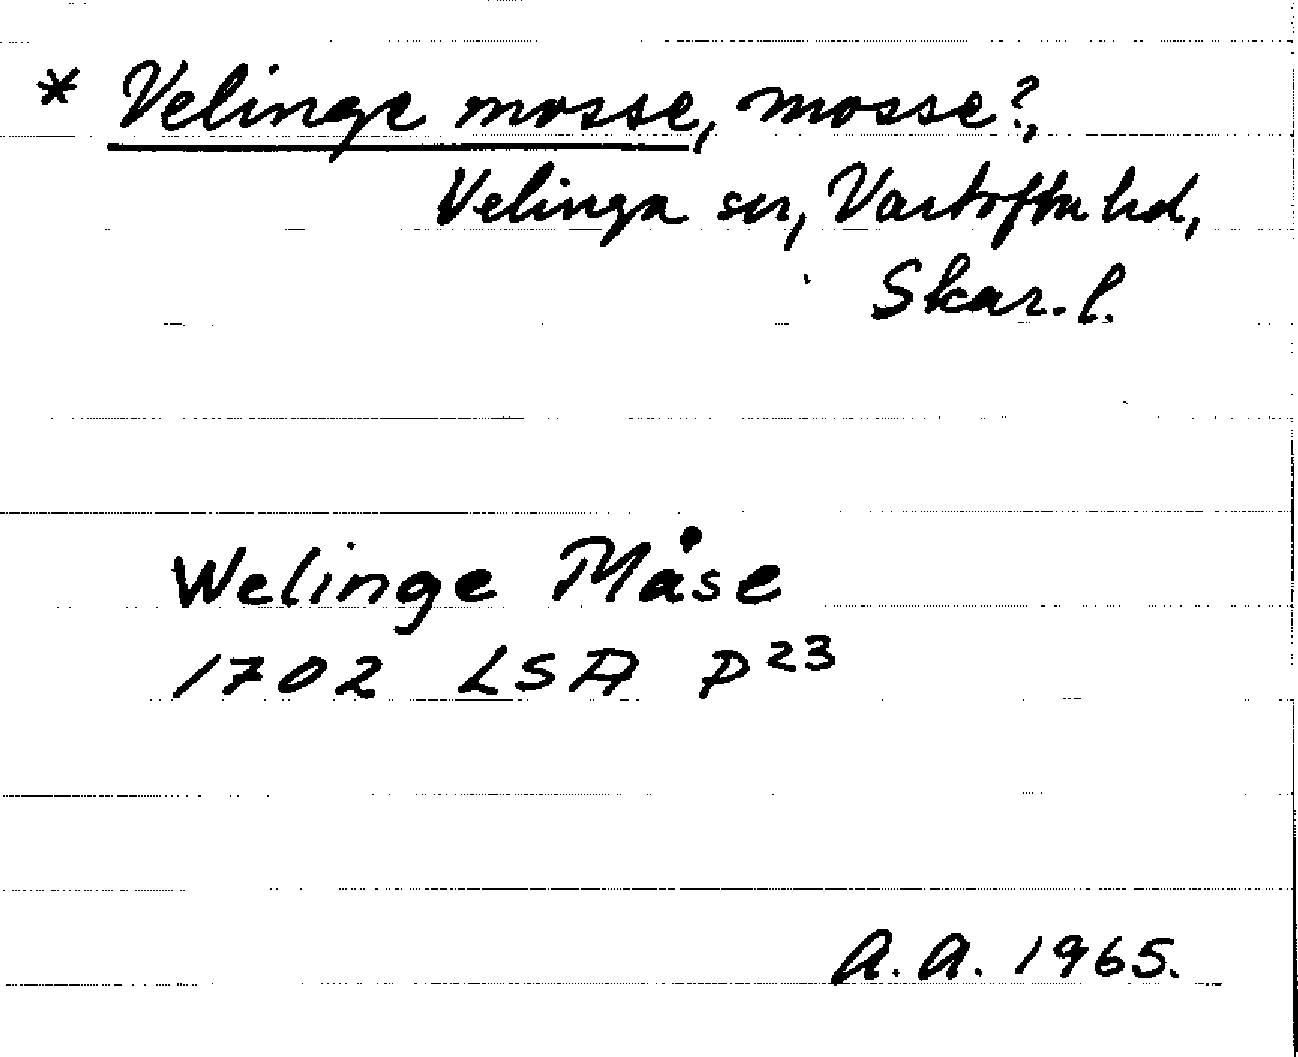 * Velinge mosse, mosse?,
Velinga sn, Vartofta hd,
Skar. l.
Welinge Måse
1702 LSA P 23
A. A. 1965.